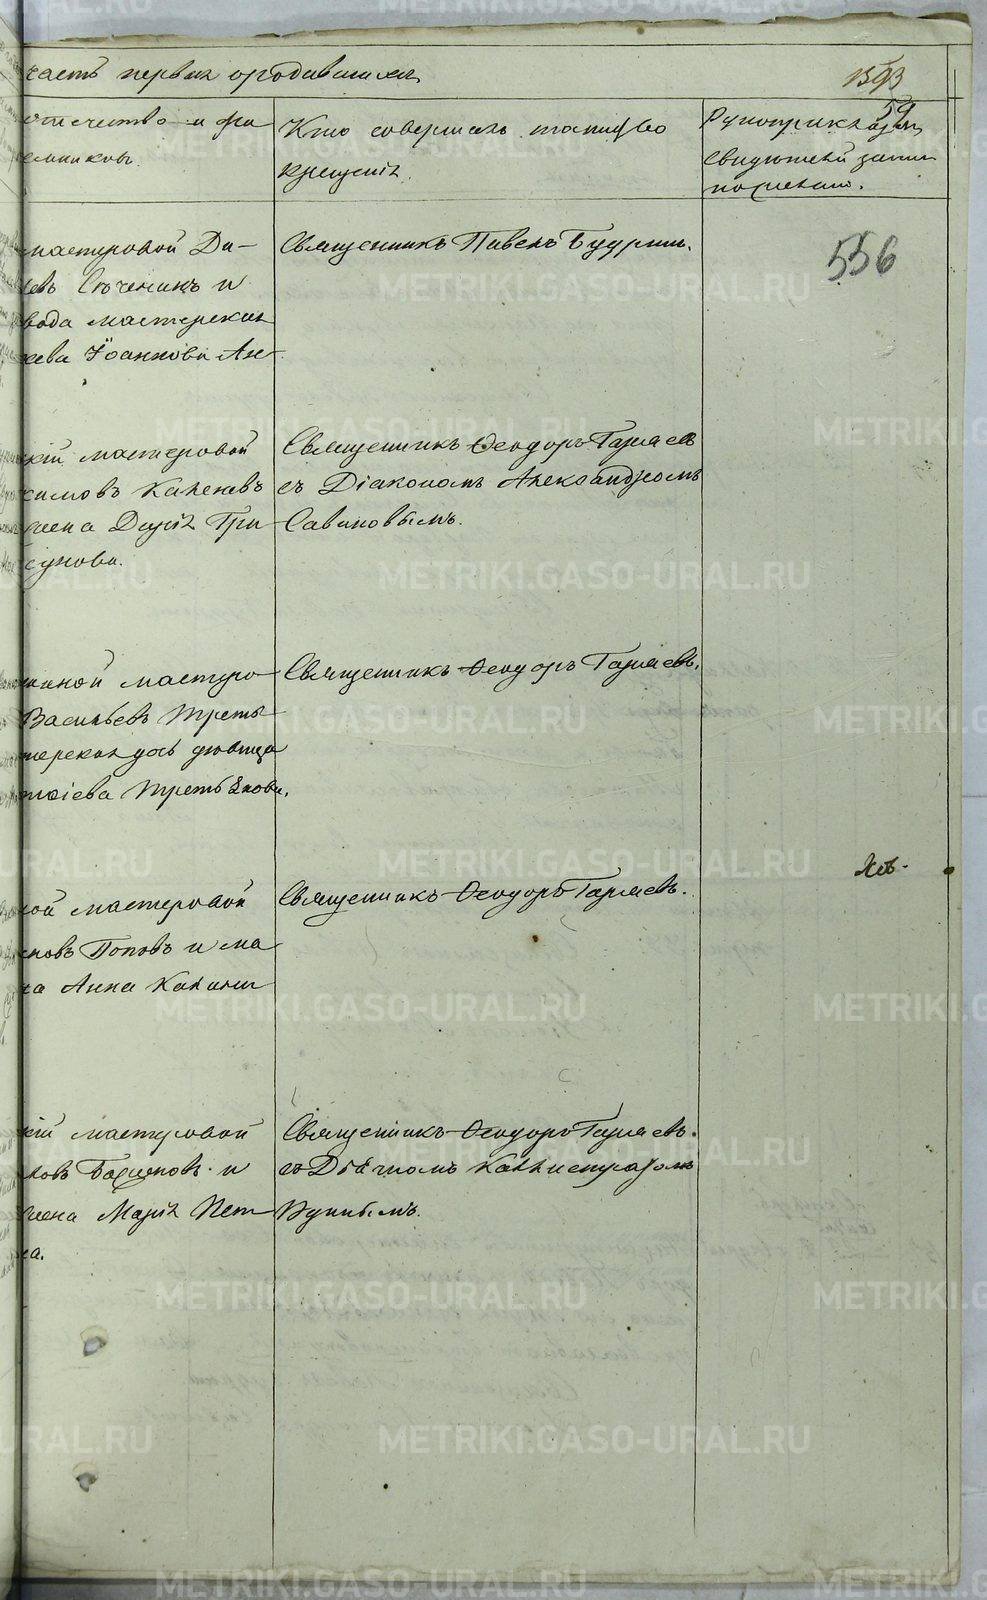 часть первая о родившихся
1593
59
отчество и фа
емниковъ.
Кто совершалъ таинство
крещенія.
Рукоприкладст
свидѣтелей записи
по желанію.
556
мастеровой Да-
евъ и
вода мастерская
сева Іоаннова Ан-
Священникъ Павелъ Будринъ.
кій мастеровой
симовъ Каленевъ
жена Дарія Гри
сунова.
Священникъ Ѳеодоръ Гаряевъ
съ Діакономъ Александромъ
Савиновымъ.
нной мастеро-
Васильевъ Треть-
терская дочь дѣвица
ѳіева Третьякова.
Священникъ Ѳеодоръ Гаряевъ.
ной мастеровой
новъ Поповъ и ма
на Анна Калини
Священникъ Ѳеодоръ Гаряевъ.
кій мастеровой
ловъ и
жена Марія Пет-
на.
Священникъ Ѳеодоръ Гаряевъ.
съ Дьячкомъ Каллистратомъ
METRIKI.GASO-URAL.RU